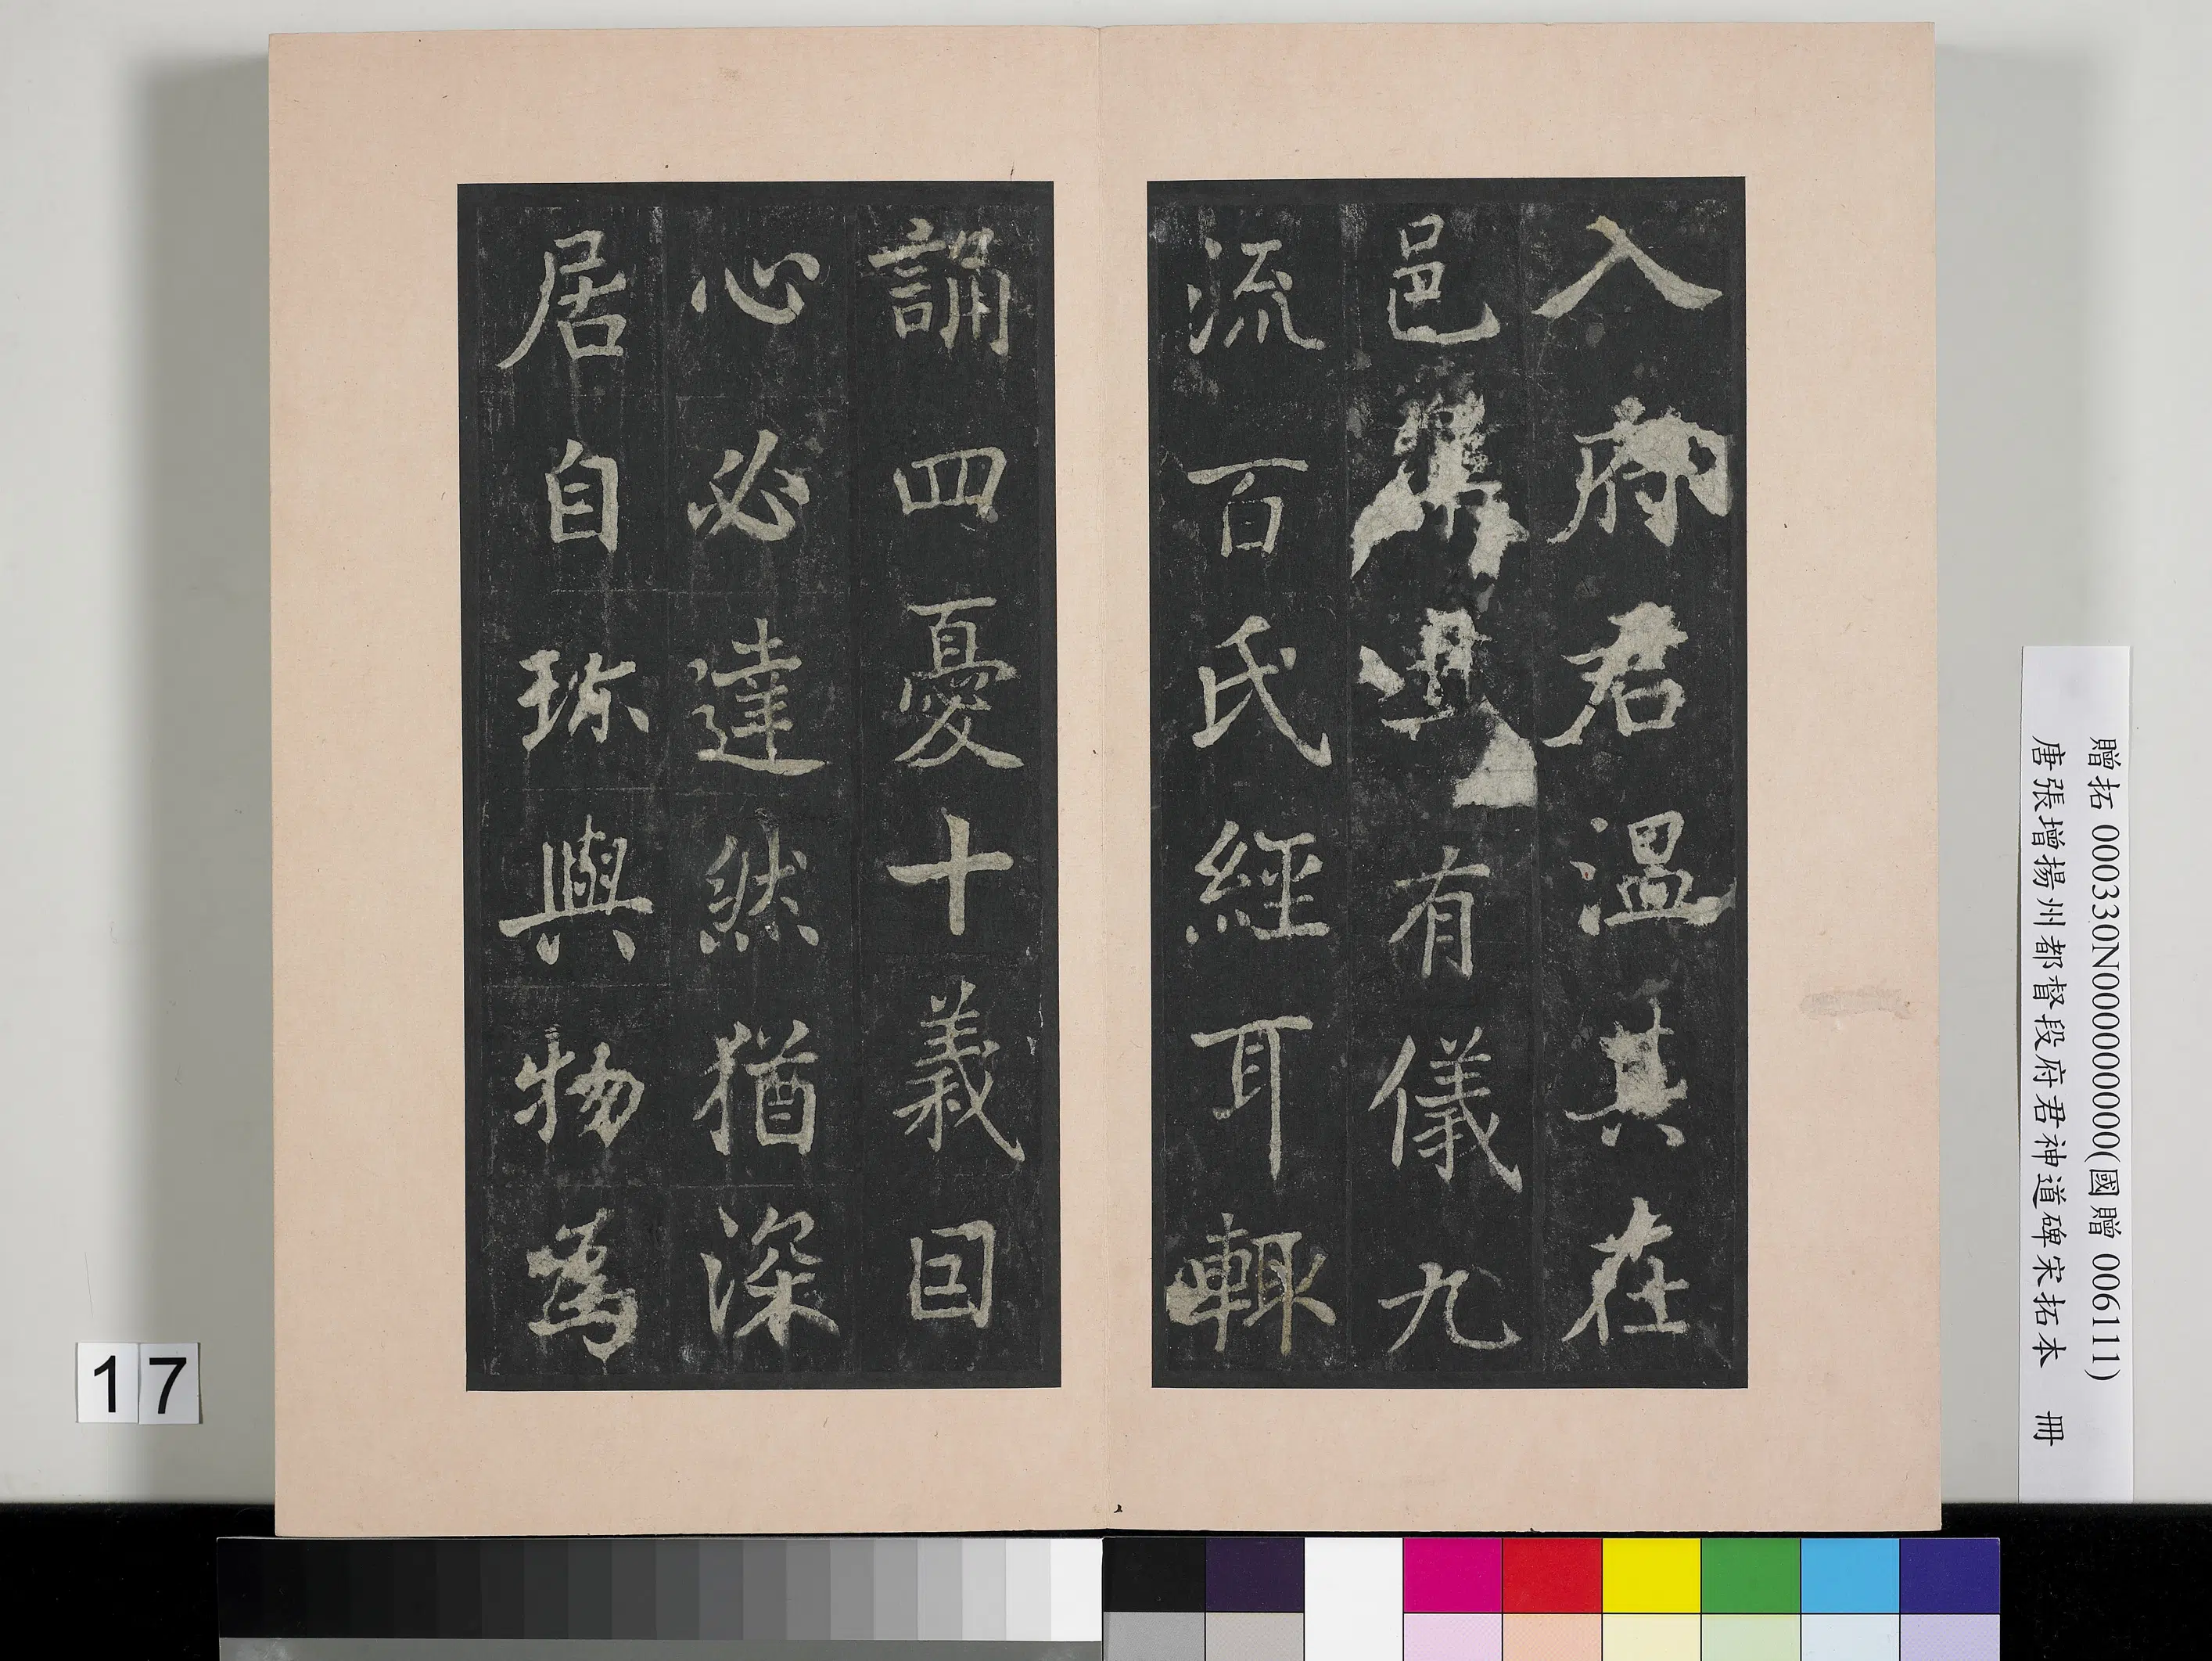 入府君温其在
邑 有儀九
流百氏經耳輙
誦四憂十義因
心必達然猶深
居自珎與物爲
贈拓 000330N000000000(國贈 006111)
唐張增揚州都督段府君神道碑宋拓本 冊
17